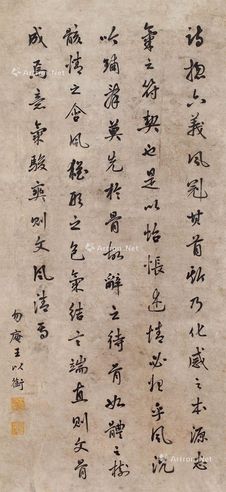 詩揔六義風冠其首斯乃化感之本源志
氣之符契也是以怡悵述情必始乎風沉
吟鋪辭莫先於骨故辭之待骨如體之樹
骸情之含風猶形之包氣結言端直則文骨
成焉意氣駿爽則文風清焉
勿庵王以銜